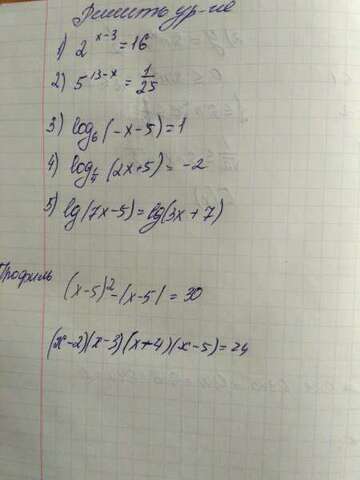 Решить ур-ие
1) 2^{x-3} = 16
2) 5^{13-x} = \frac{1}{25}
3) log_6 (-x-5) = 1
4) log_{1/7} (2x+5) = -2
5) lg(7x-5) = lg(3x+7)
Профиль
(x-5)^2 - |x-5| = 30
(x-2)(x-3)(x+4)(x-5) = 24